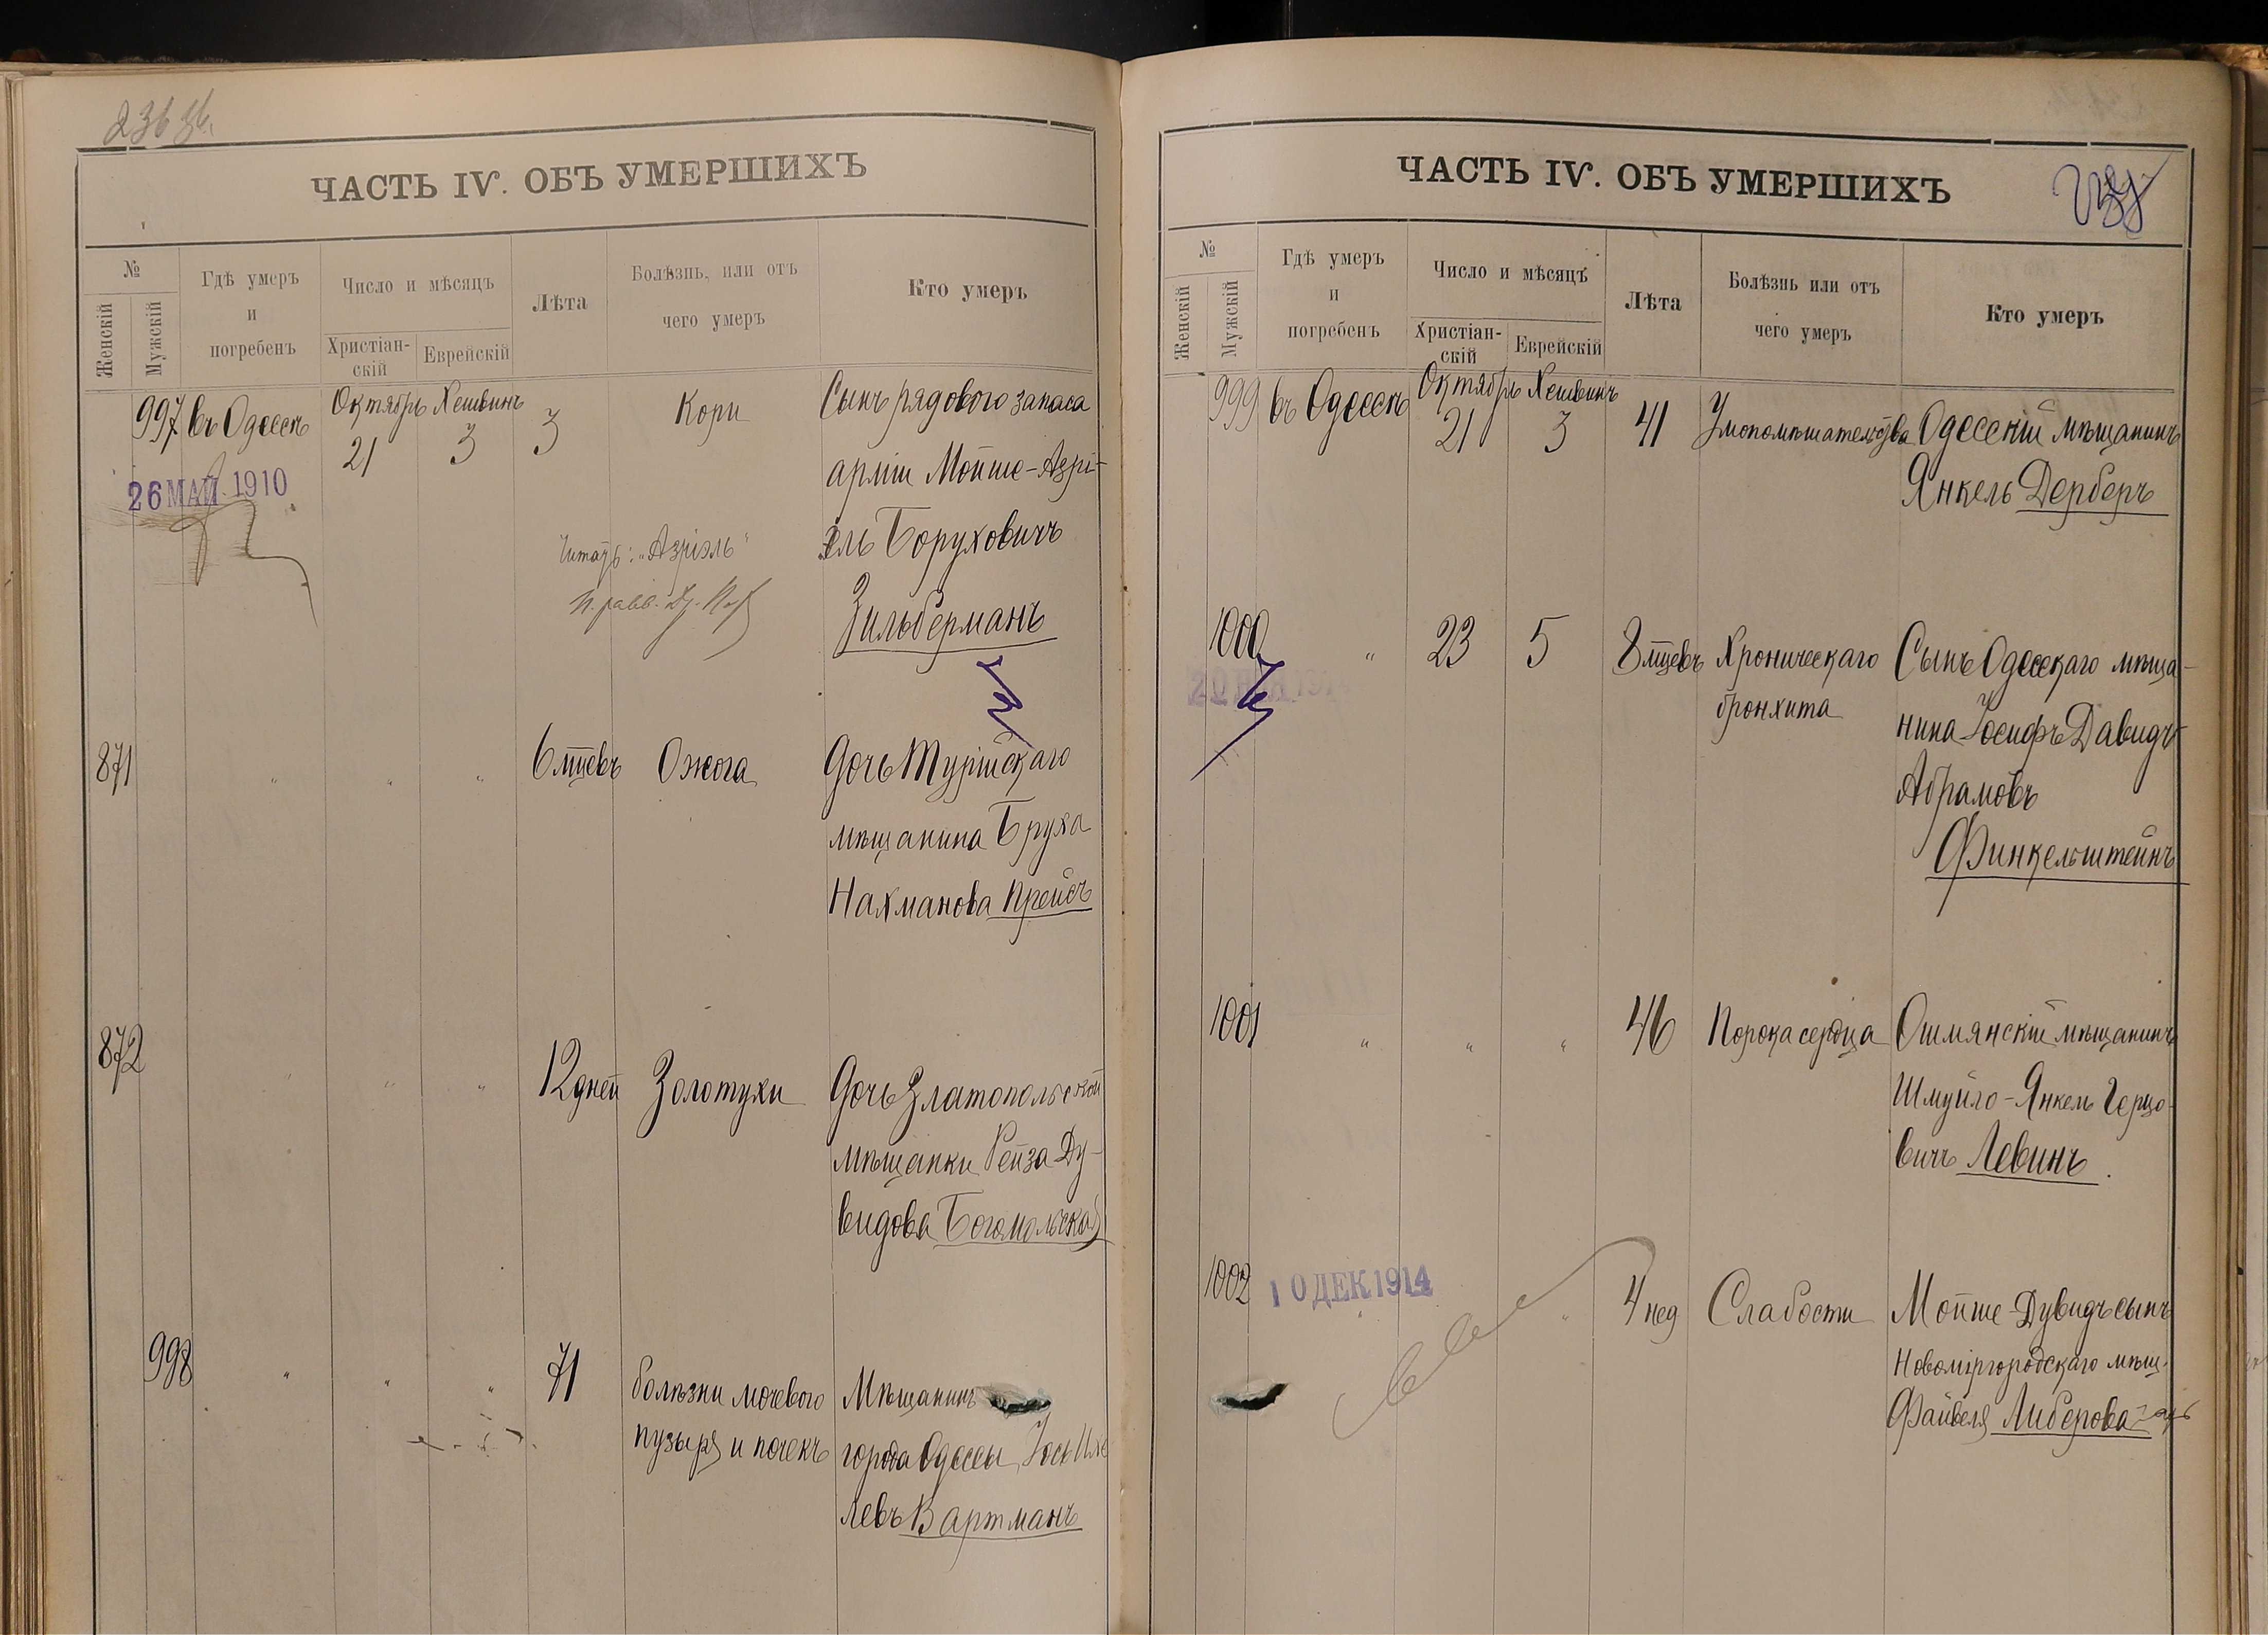 236 зб.
ЧАСТЬ IV. ОБЪ УМЕРШИХЪ
№
Женскій
Мужскій
Гдѣ умеръ
и
погребенъ
Число и мѣсяцъ
Христіан-
скій
Еврейскій
Лѣта
Болѣзнь, или отъ
чего умеръ
Кто умеръ
997 въ Одессѣ Октябрь 21 Хешвинъ 3 3 Кори Сынъ рядового запаса
арміи Мойше-Азрі-
эль Боруховичъ
Зильберманъ
26 МАЙ 1910
Читать: "Азріэль"
871 " " " 6 мцевъ Ожога Дочь Турійскаго
мѣщанина Бруха
Нахманова Прейсъ
872 " " " 12 дней Золотухи Дочь Златопольской
мѣщанки Рейза Ду-
видова Богомольская
998 " " " 71 болѣзни мочевого Мѣщанинъ
пузыря и почекъ города Одессы
Левъ Вартманъ
ЧАСТЬ IV. ОБЪ УМЕРШИХЪ
№
Женскій
Мужскій
Гдѣ умеръ
и
погребенъ
Число и мѣсяцъ
Христіан-
скій
Еврейскій
Лѣта
Болѣзнь или отъ
чего умеръ
Кто умеръ
999 въ Одессѣ Октябрь 21 Хешвинъ 3 41 Умопомѣшательства Одесскій мѣщанинъ
Янкель Дерберъ
1000 " 23 5 8 мцевъ Хроническаго Сынъ Одесскаго мѣща-
бронхита нина Іосифъ Давидъ
Абрамовъ
Финкельштейнъ
1001 " " " 46 Порока сердца Ошмянскій мѣщанинъ
Шмуйло-Янкель Герцо-
вичъ Левинъ.
1002 " " 4 нед Слабости Мойше-Дувидъ сынъ
10 ДЕК 1914
Новоміргородскаго мѣщ.
Файвеля Либерова